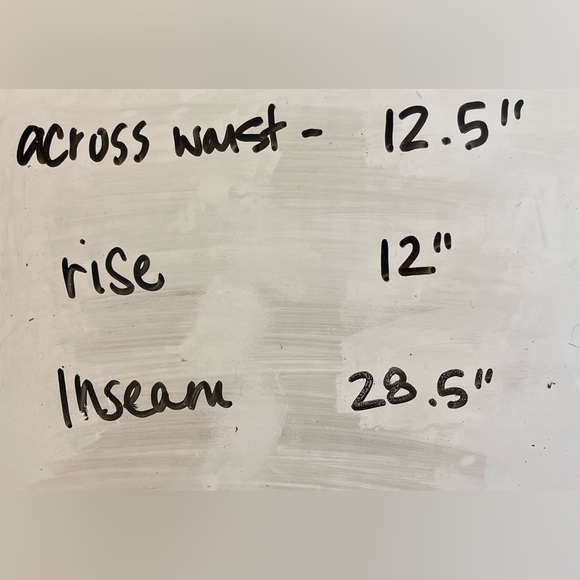 across waist - 12.5"
rise 12"
Inseam 28.5"